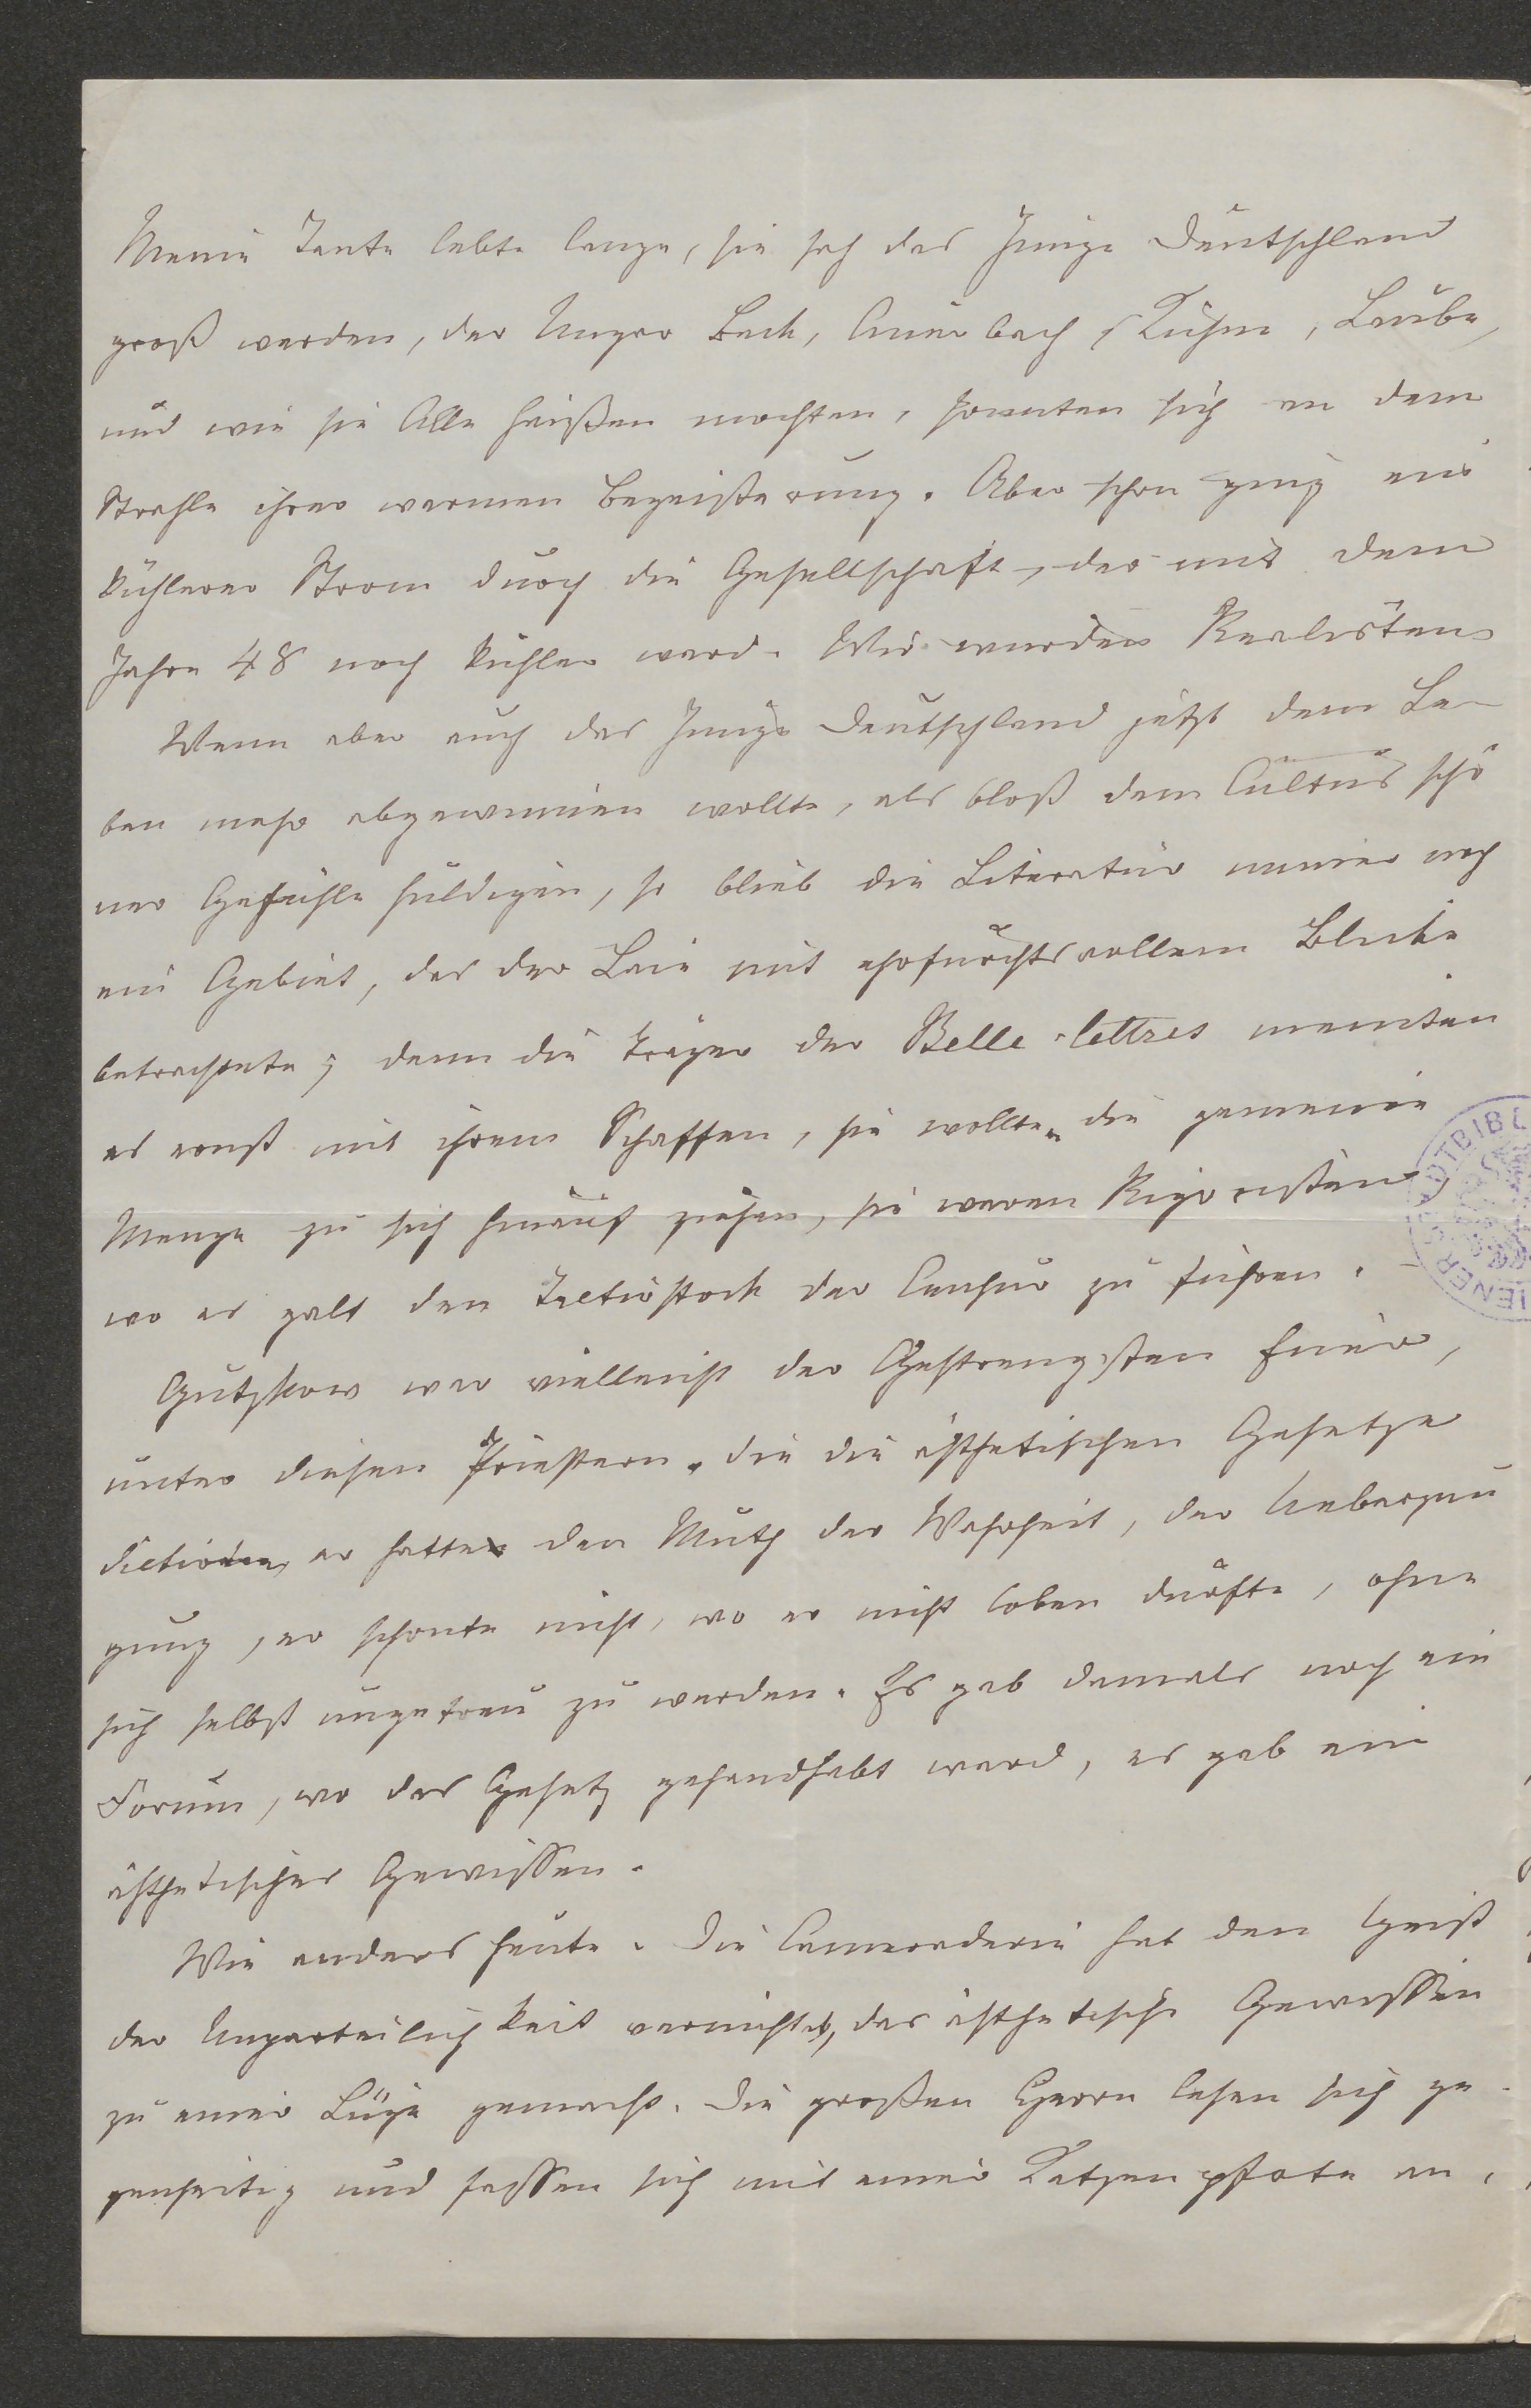 Meine Tante lebte lange, sie sah das Junge Deutschland
groß werden, der Ungar Beck, Auerbach, Kühne, Laube,
und wie sie Alle heißen mochten, sonnten sich an dem
Strahle ihrer warmen Begeisterung. Aber schon ging ein
kühlerer Strom durch die Gesellschaft, der mit dem
Jahre 48 noch kühler ward. Wir wurden Realisten.
Wenn aber auch das Junge Deutschland jetzt dem Le-
ben mehr abgewinnen wollte, als bloß dem Cultus schö
ner Gefühle huldigen, so blieb die Literatur immer noch
ein Gebiet, das der Laie mit ehrfurchtsvollem Blicke
betrachtete; denn die Träger der Belle-lettres meinten
es ernst mit ihrem Schaffen, sie wollten die gemeine
Menge zu sich hinauf ziehen, sie waren Rigoristen,
wo es galt den Tactirstock der Censur zu führen.
Gutzkow war vielleicht der Gestrengsten Einer,
unter diesen Priestern, die die ästhetischen Gesetze
dictiren, er hatte den Muth der Wahrheit, der Ueberzeu
gung, er schonte nicht, wo er nicht loben durfte, ohne
sich selbst ungetreu zu werden. Es gab damals noch ein
Forum, wo das Gesetz gehandhabt ward, es gab ein
ästhetisches Gewissen.
Wie anders heute. Die Cameraderie hat den Geist
der Unparteilichkeit vernichtet, das ästhetische Gewissen
zu einer Lüge gemacht. Die großen Herrn lesen sich ge-
genseitig und fassen sich mit einer Katzenpfote an,